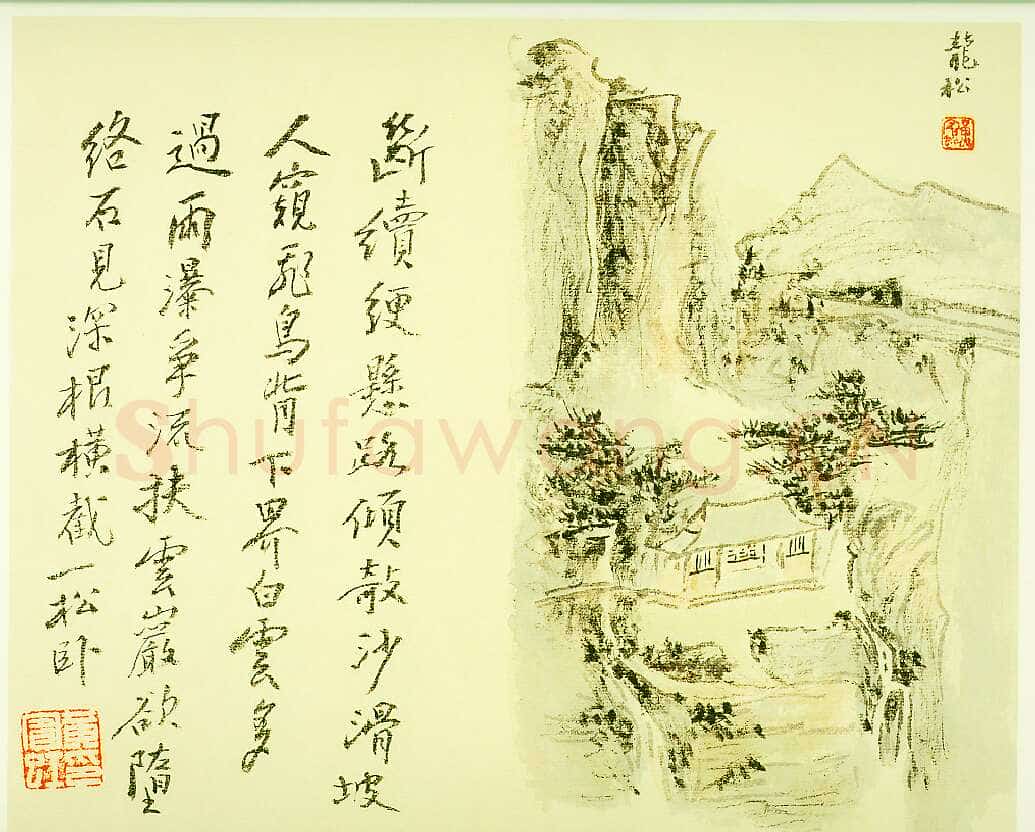 龍松
斷續綆懸路傾敧沙滑坡
人窺飛鳥背下界白雲多
過雨瀑爭流挾雲巖欲墮
絡石見深根橫截一松卧
Shufawang.CN